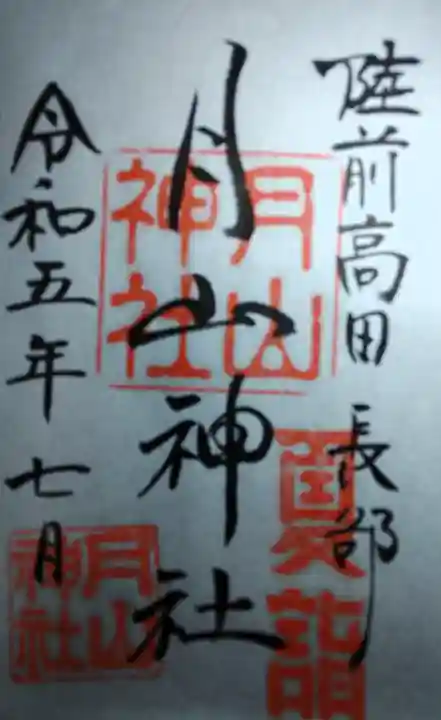 陸前高田 長部
月山神社
令和五年七月
月山
神社
月山
神社